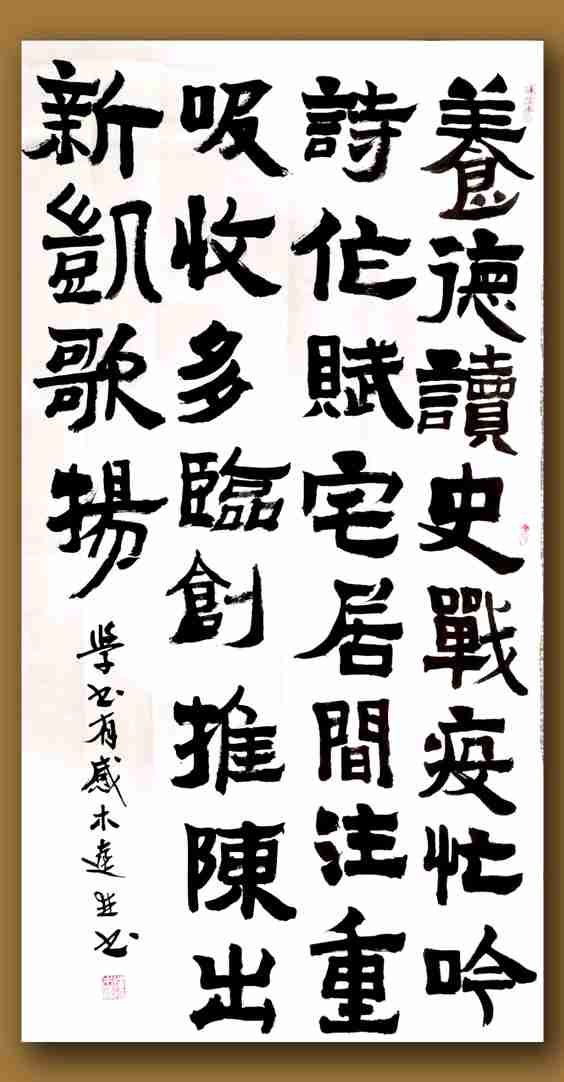 養德讀史戰疫忙吟
詩作賦宅居間注重
吸收多臨創推陳出
新凱歌揚
學書有感木遠並書